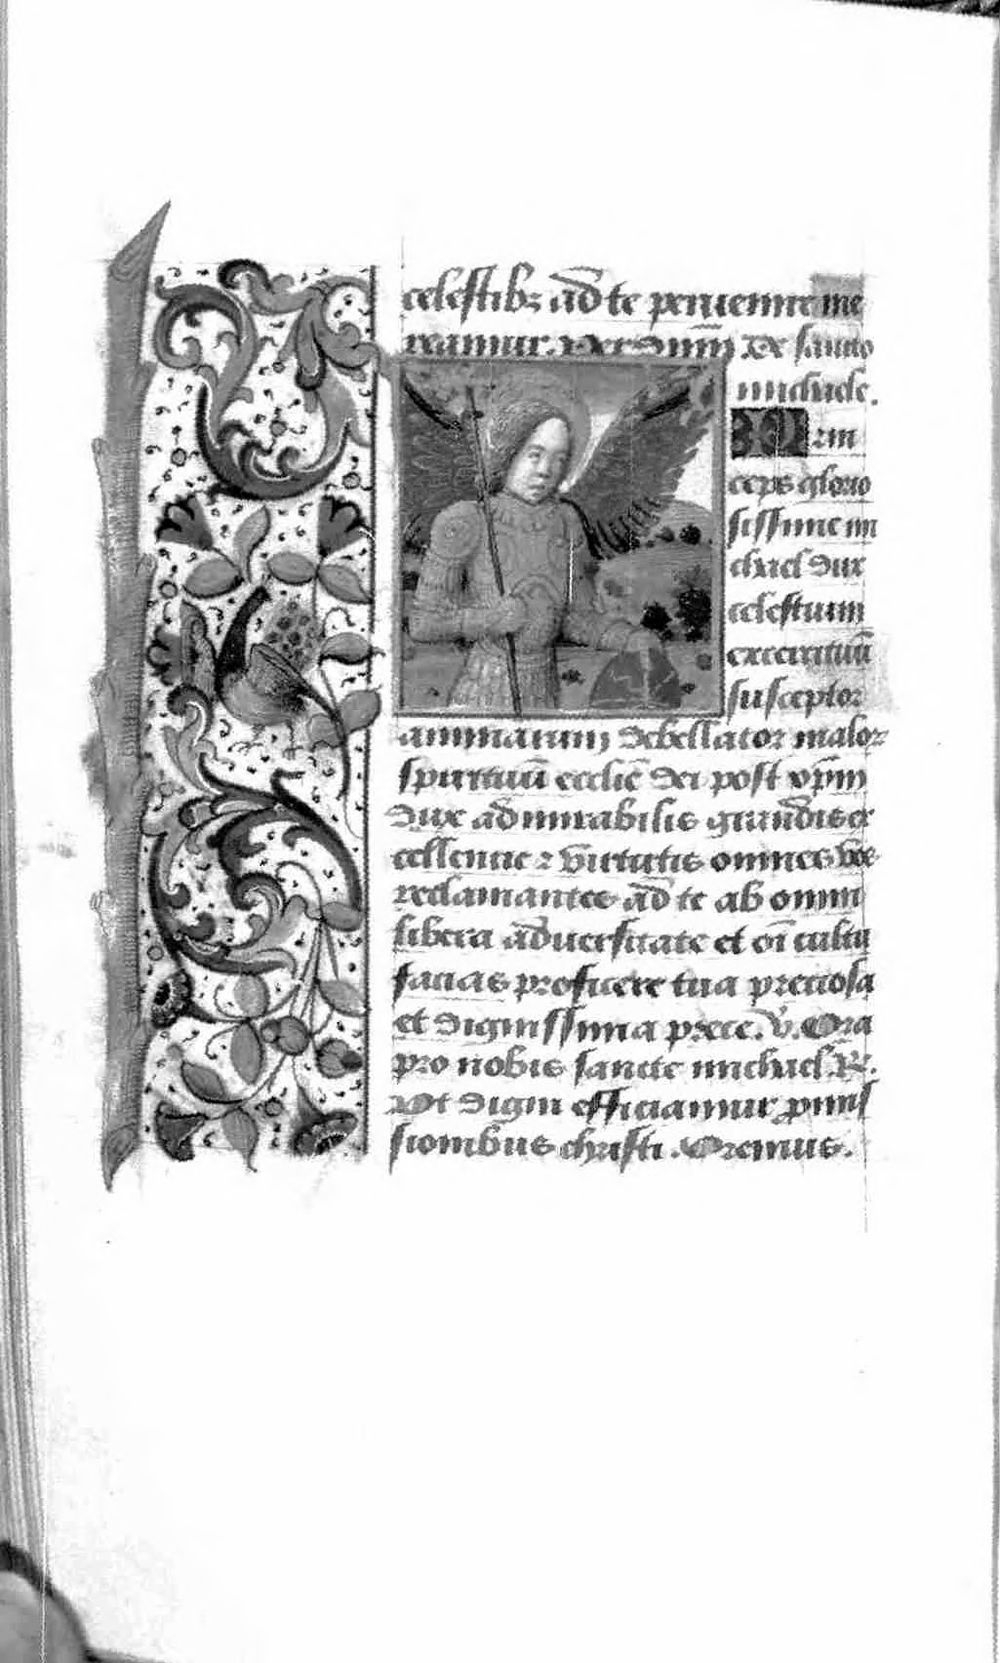 celestib3 ad te peruenire me
reamur. Per dnm̄ De sancto
michaele.
Prin
ceps glorio
sissime mi
chael dux
celestium
exercituū
susceptor
animarum debellator malor
spirituū ecclīe dei post xp̄m
dux admirabilis grandis ex
cellencie ⁊ virtutis omnes
reclamantes ad te ab omni
libera aduersitate et oī cultu
facias proficere tua preciosa
et dignissima prece. v̄. Ora
pro nobis sancte michael. R.
Vt digni efficiamur ꝓmis
sionibus christi. Oremus.